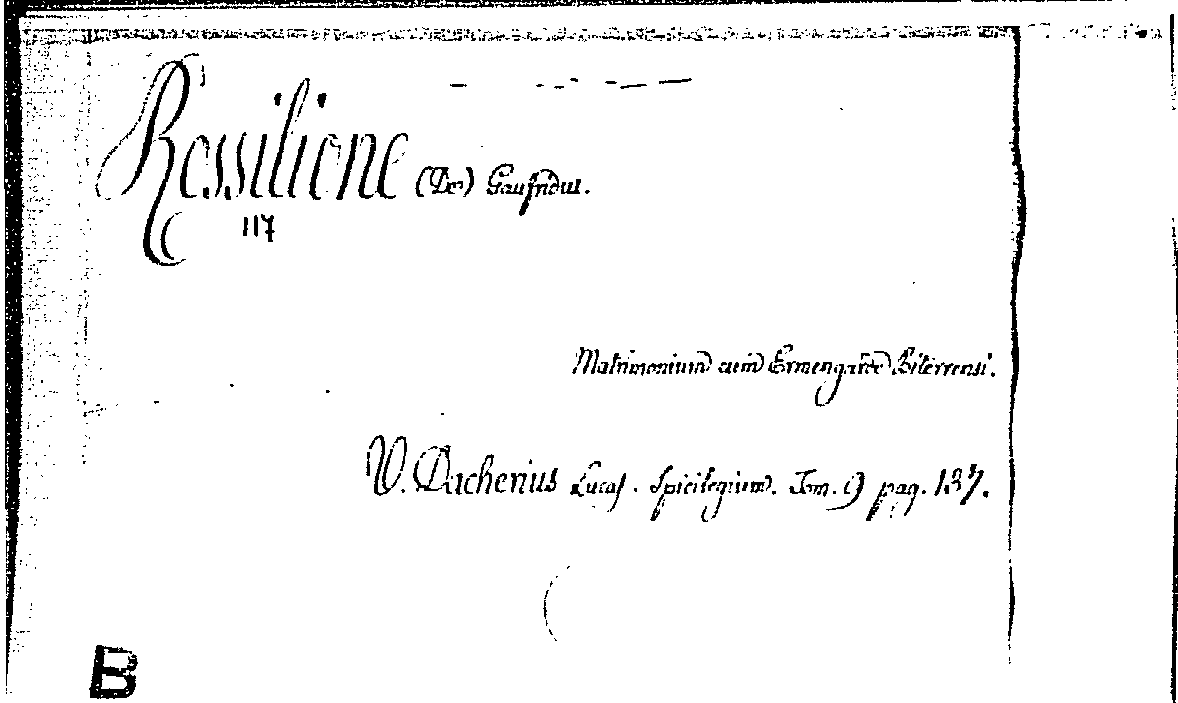 Rossilione (De) Gaufridus.
117
Matrimonium cum Ermengarde Biterrensi.
V. Dacherius Lucas. Spicilegium. Tom. 9 pag. 137.
B